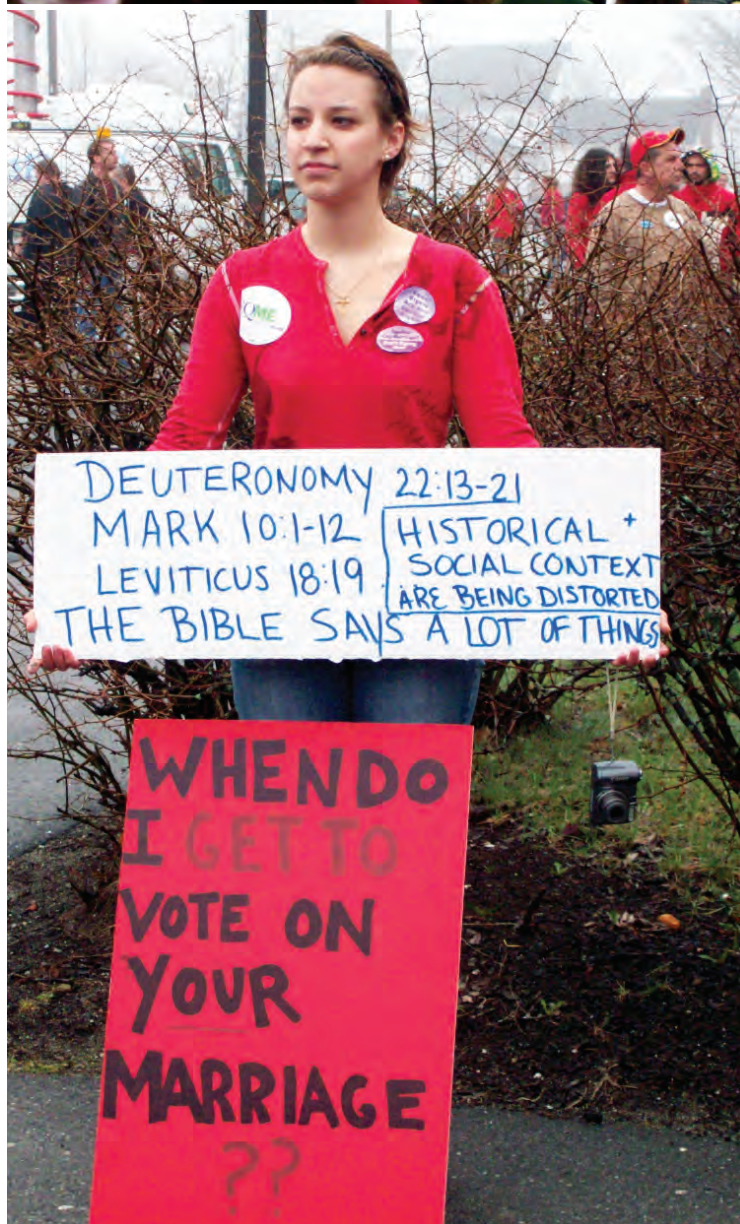 DEUTERONOMY 22:13-21
MARK 10:1-12
LEVITICUS 18:19
HISTORICAL +
SOCIAL CONTEXT
ARE BEING DISTORTED
THE BIBLE SAYS A LOT OF THINGS
WHEN DO
I GET TO
VOTE ON
YOUR
MARRIAGE
??